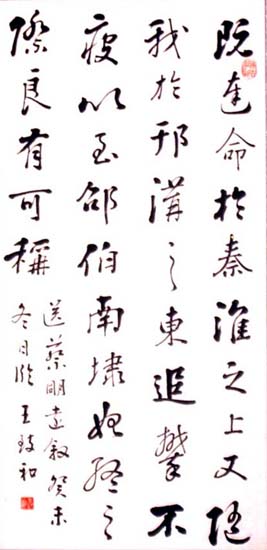 既達命於秦淮之上又随
我於邗溝之東追攀不
疲以至邵伯南埭始終之
際良有可稱
送蔡明遠叙癸未
冬月臨 王致和